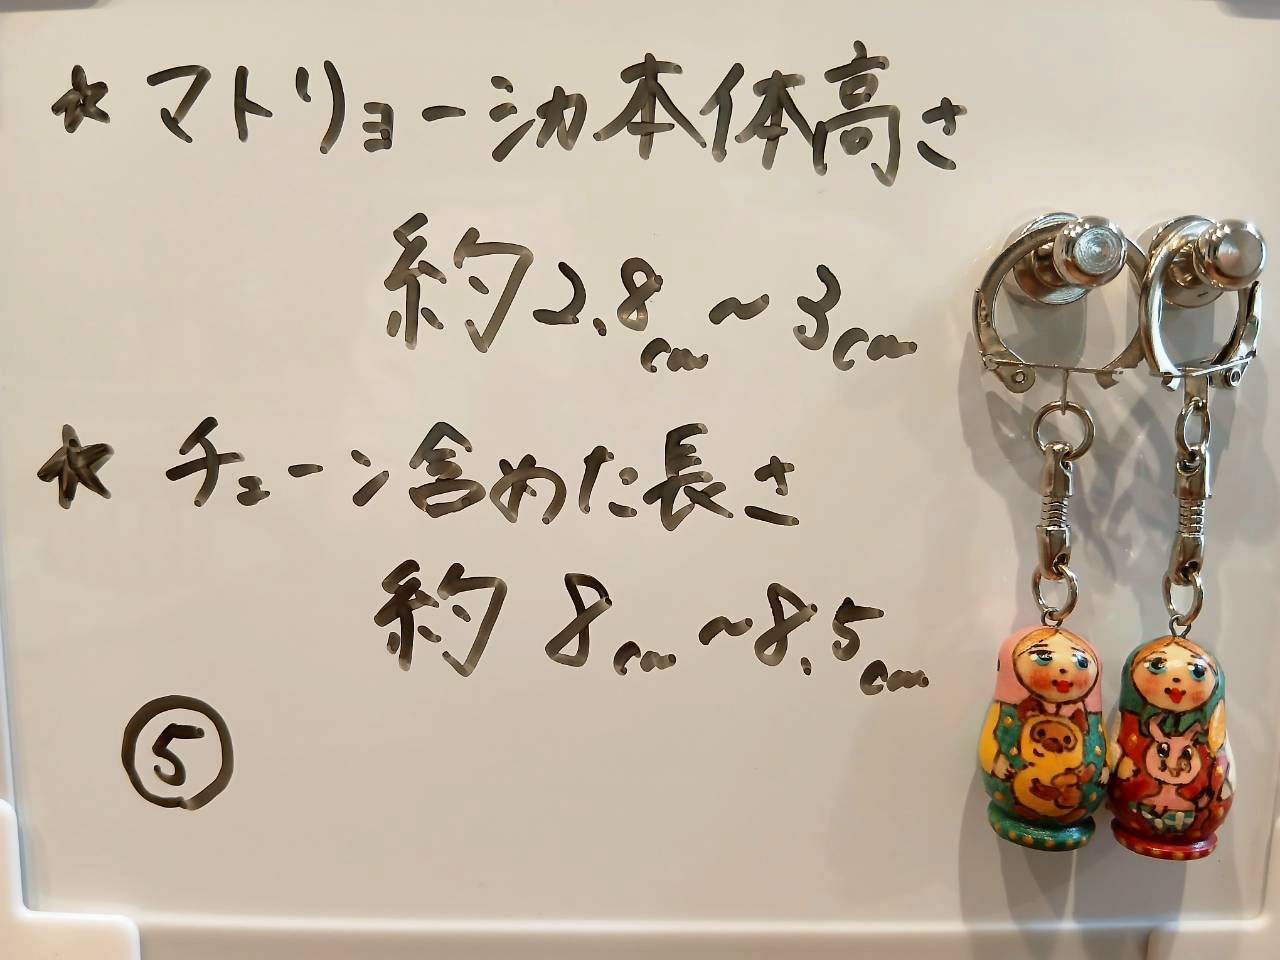 ★ マトリョーシカ本体高さ
約2.8cm~3cm
★ チェーン含めた長さ
約 8cm~8.5cm
⑤